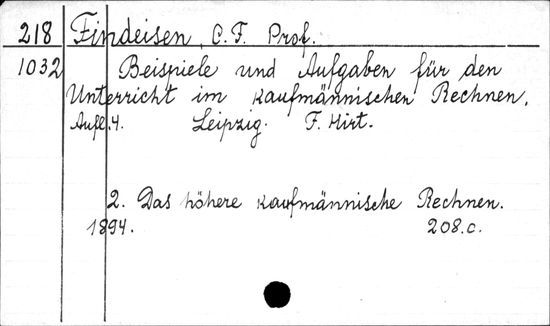 218 Findeisen, C. F. Prof.
1032 Beispiele und Aufgaben für den
Unterricht im kaufmännischen Rechnen.
Aufl. 4. Leipzig. F. Hirt.
2. Das höhere kaufmännische Rechnen.
1894. 208.c.